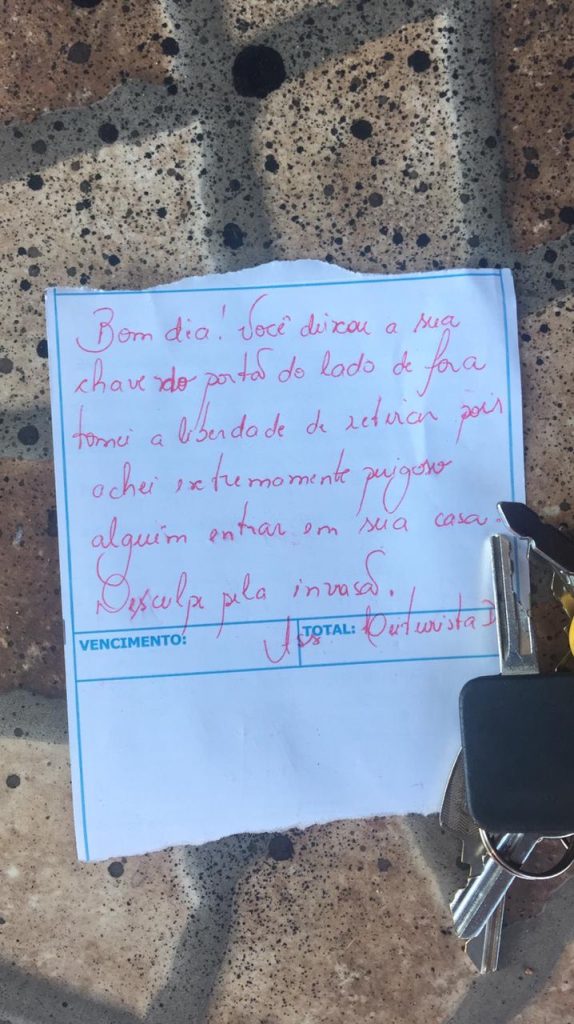 Bom dia! Você deixou a sua
chave do portão do lado de fora
tomei a liberdade de retirar pois
achei extremamente perigoso
alguém entrar em sua casa.
Desculpe pela invasão.
VENCIMENTO:
Ass TOTAL: